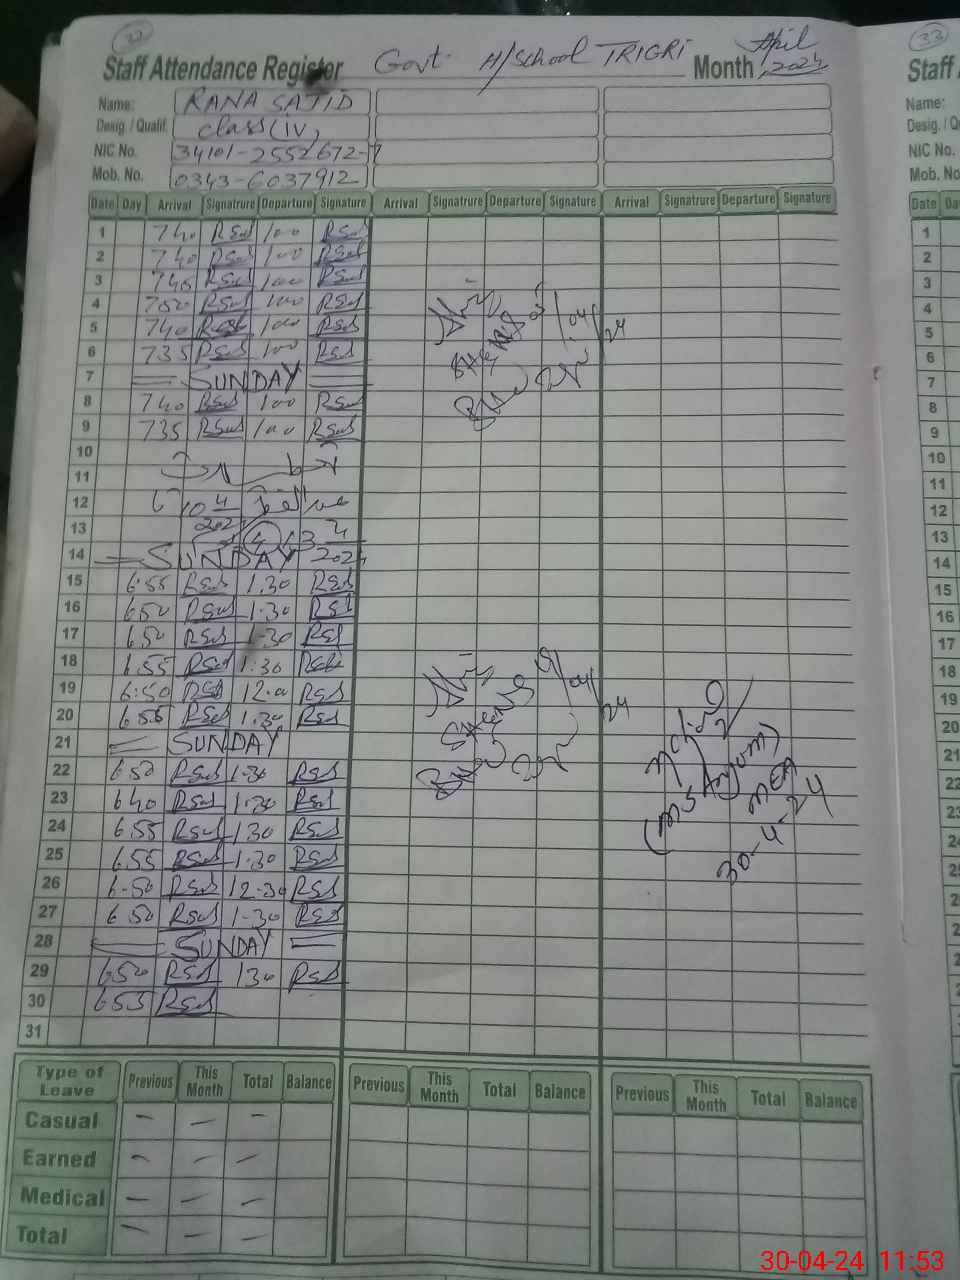 32
33
Staff Attendance Register Govt. H/School TRIGRI Month April 2024
Staff
Name: RANA SAJID
Desig. / Qualif. class (IV)
NIC No. 34101-2552672-7
Mob. No. 0343-6037912
Name:
Desig. /
NIC No.
Mob. No
Date Day Arrival Signatrure Departure Signature Arrival Signatrure Departure Signature Arrival Signatrure Departure Signature
Date
1 740 RSad 100 RSad
2 740 RSad 100 RSad
3 745 RSad 100 RSad
4 750 RSad 100 RSad
5 740 RSad 100 RSad
6 735 RSad 100 RSad
7 SUNDAY
8 740 RSad 100 RSad
9 735 RSad 100 RSad
10
11
12
13
14 SUNDAY 2024
15 6.55 RSad 1.30 RSad
16 650 RSad 1.30 RSad
17 650 RSad 1.30 RSad
18 6.55 RSad 1:30 RSad
19 6:50 RSad 12.0 RSad
20 655 RSad 1.30 RSad
21 SUNDAY
22 650 RSad 1.30 RSad
23 640 RSad 1.30 RSad
24 6.55 RSad 130 RSad
25 6.55 RSad 1.30 RSad
26 6-50 RSad 12.30 RSad
27 650 RSad 1-30 RSad
28 SUNDAY
29 650 RSad 130 RSad
30 655 RSad
31
05/04/24
19/04/24
(MS Anjum)
MEA
30-4-24
Type of Leave Previous This Month Total Balance Previous This Month Total Balance Previous This Month Total Balance
Casual - - -
Earned - - -
Medical - - -
Total - - -
1
2
3
4
5
6
7
8
9
10
11
12
13
14
15
16
17
18
19
20
21
22
23
30-04-24 11:53